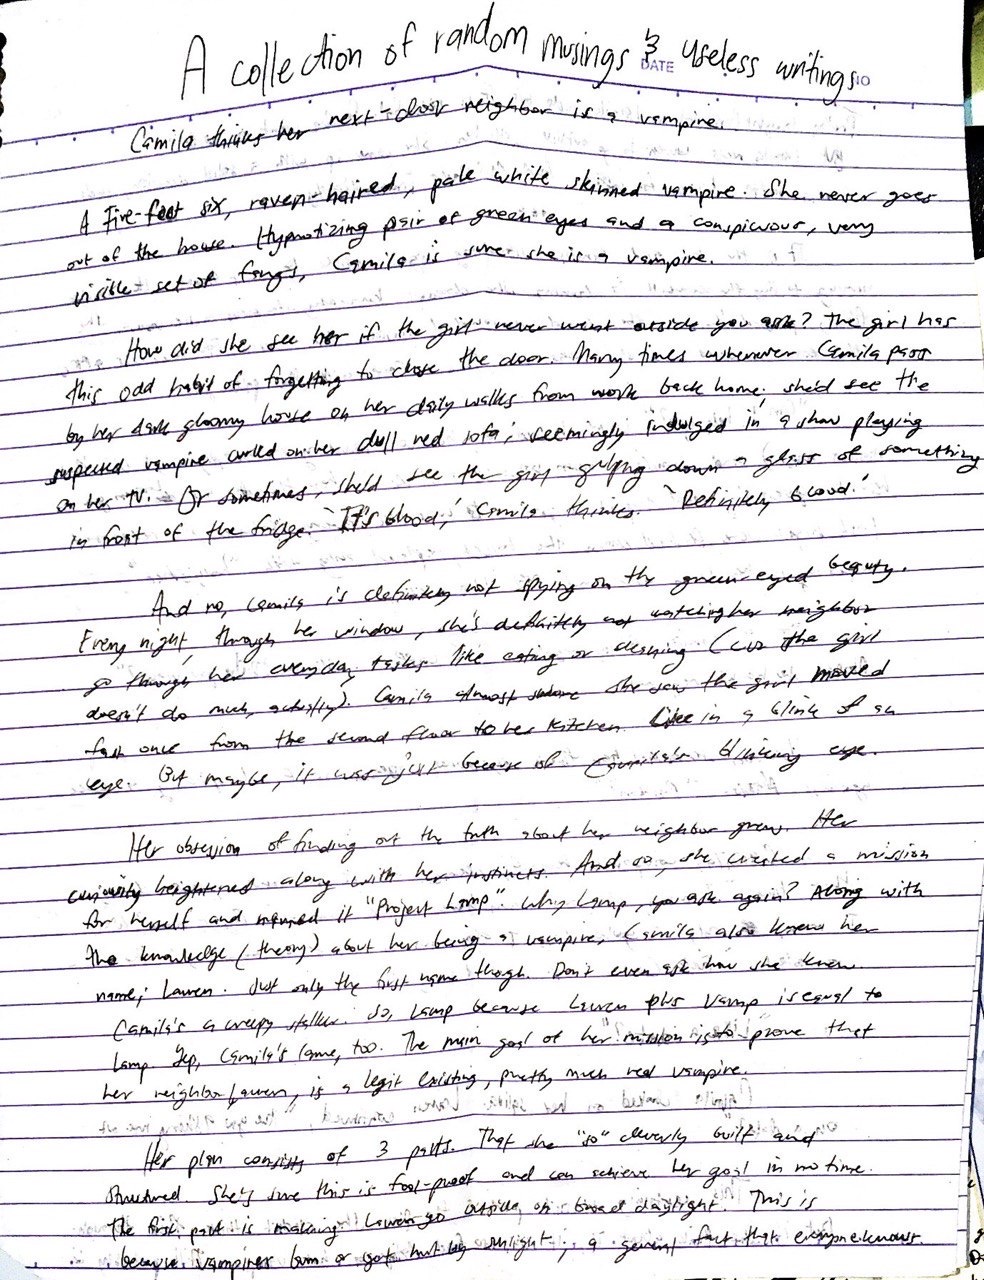 A collection of random musings & useless writings
DATE
NO
Camila thinks her next-door neighbor is a vampire.
A Five-foot six, raven-haired, pale white skinned vampire. She never goes
out of the house. Hypnotizing pair of green eyes and a conspicuous, very
visible set of fangs, Camila is sure she is a vampire.
How did she see her if the girl never went outside you ask? The girl has
this odd habit of forgetting to close the door. Many times whenever Camila pass
by her dark gloomy house on her daily walks from work back home, she'd see the
suspected vampire curled on her dull red sofa, seemingly indulged in a show playing
on her TV. Or sometimes, she'd see the girl gulping down a glass of something
in front of the fridge. 'It's blood,' Camila thinks. 'Definitely blood.'
And no, Camila is definitely not spying on the green-eyed beauty.
Every night, through her window, she's definitely not watching her neighbor
go through her everyday tasks like eating or (cuz the girl
doesn't do much, actually). Camila almost she saw the girl moved
fast once from the second floor to her kitchen like in a blink of an
eye. But maybe, it was just because of Camila's blinking eye.
Her obsession of finding out the truth about her neighbor grew. Her
curiosity heightened along with her instincts. And so, she created a mission
for herself and named it "Project Lamp". Why Lamp, you ask again? Along with
the knowledge (theory) about her being a vampire, Camila also knew her
name; Lauren. Just only the first name though. Don't even ask how she knew.
Camila's a creepy stalker. So, Lamp because Lauren plus Vamp is equal to
Lamp. Yep, Camila's lame, too. The main goal of her mission is to prove that
her neighbor, Lauren, is a legit existing, pretty much real vampire.
Her plan consists of 3 parts. That she "so" cleverly built and
structured. She's sure this is fool-proof and can achieve her goal in no time.
The first part is making Lauren go outside on broad daylight. This is
because vampires burn or get hurt by sunlight, a general fact that everyone knows.